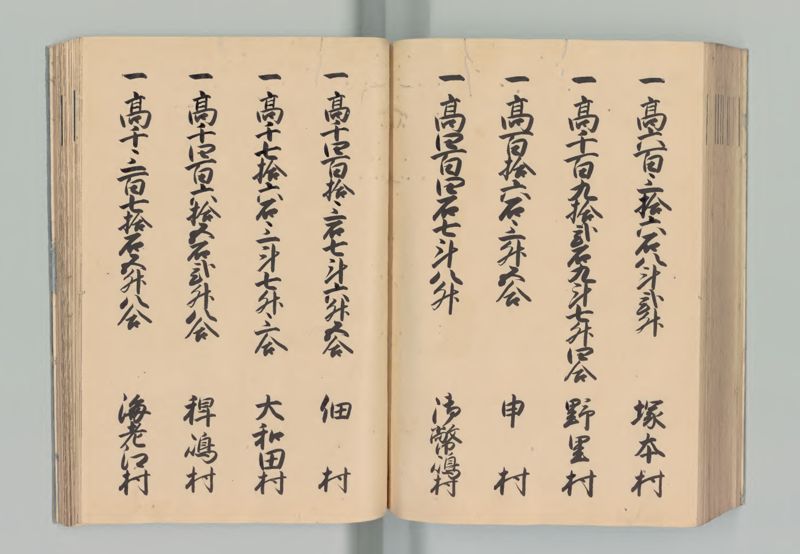 一 高六百三拾六石八斗弐升 塚本村
一 高千百九拾弐石九斗七升四合 野里村
一 高百拾六石三升五合 申村
一 高四百四石七斗八升 御幣嶋村
一 高千四百拾三石七斗六升五合 佃村
一 高千七拾六石三斗七升三合 大和田村
一 高千四百六拾五石弐升八合 稗嶋村
一 高千三百七拾石五升八合 海老江村